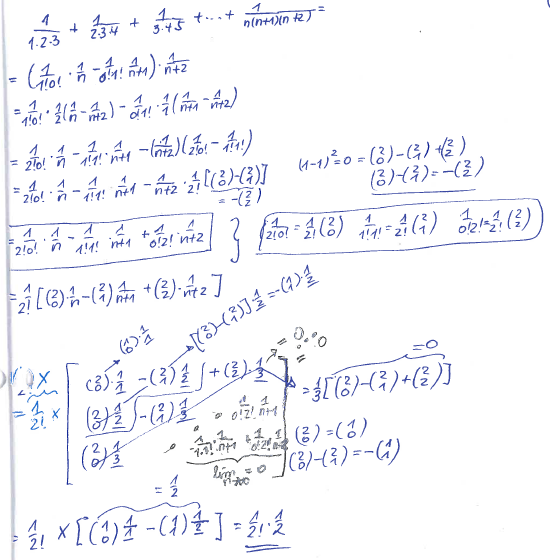 1/(1·2·3) + 1/(2·3·4) + 1/(3·4·5) + ... + 1/(n(n+1)(n+2)) =
= (1/(1!0!) · 1/n - 1/(0!1!) · 1/(n+1)) · 1/(n+2)
= 1/(1!0!) · 1/2 (1/n - 1/(n+2)) - 1/(0!1!) · 1/1 (1/(n+1) - 1/(n+2))
= 1/(2!0!) · 1/n - 1/(1!1!) · 1/(n+1) - (1/(n+2)) (1/(2!0!) - 1/(1!1!))
(1-1)² = 0 = (2 0) - (2 1) + (2 2)
(2 0) - (2 1) = -(2 2)
= 1/(2!0!) · 1/n - 1/(1!1!) · 1/(n+1) - 1/(n+2) · 1/2! [(2 0) - (2 1)]
= -(2 2)
= 1/(2!0!) · 1/n - 1/(1!1!) · 1/(n+1) + 1/(0!2!) · 1/(n+2) }
1/(2!0!) = 1/2! (2 0) 1/(1!1!) = 1/2! (2 1) 1/(0!2!) = 1/2! (2 2)
= 1/2! [(2 0) · 1/n - (2 1) 1/(n+1) + (2 2) · 1/(n+2)]
(1 0) · 1/1
[(2 0) - (2 1)] 1/2 = -(1 1) · 1/2
= 0
= 1/2! × [ (2 0) · 1/1 - (2 1) 1/2 + (2 2) · 1/3
(2 0) 1/2 - (2 1) 1/3
(2 0) 1/3
1/(0!2!) · 1/(n+1)
-1/(1!1!) · 1/(n+1) + 1/(0!2!) · 1/(n+2)
lim n→∞ = 0
= 1/3 [(2 0) - (2 1) + (2 2)]
= 0
(2 0) = (1 0)
(2 0) - (2 1) = -(1 1)
= 1/2
= 1/2! × [(1 0) 1/1 - (1 1) 1/2] = 1/2! · 1/2